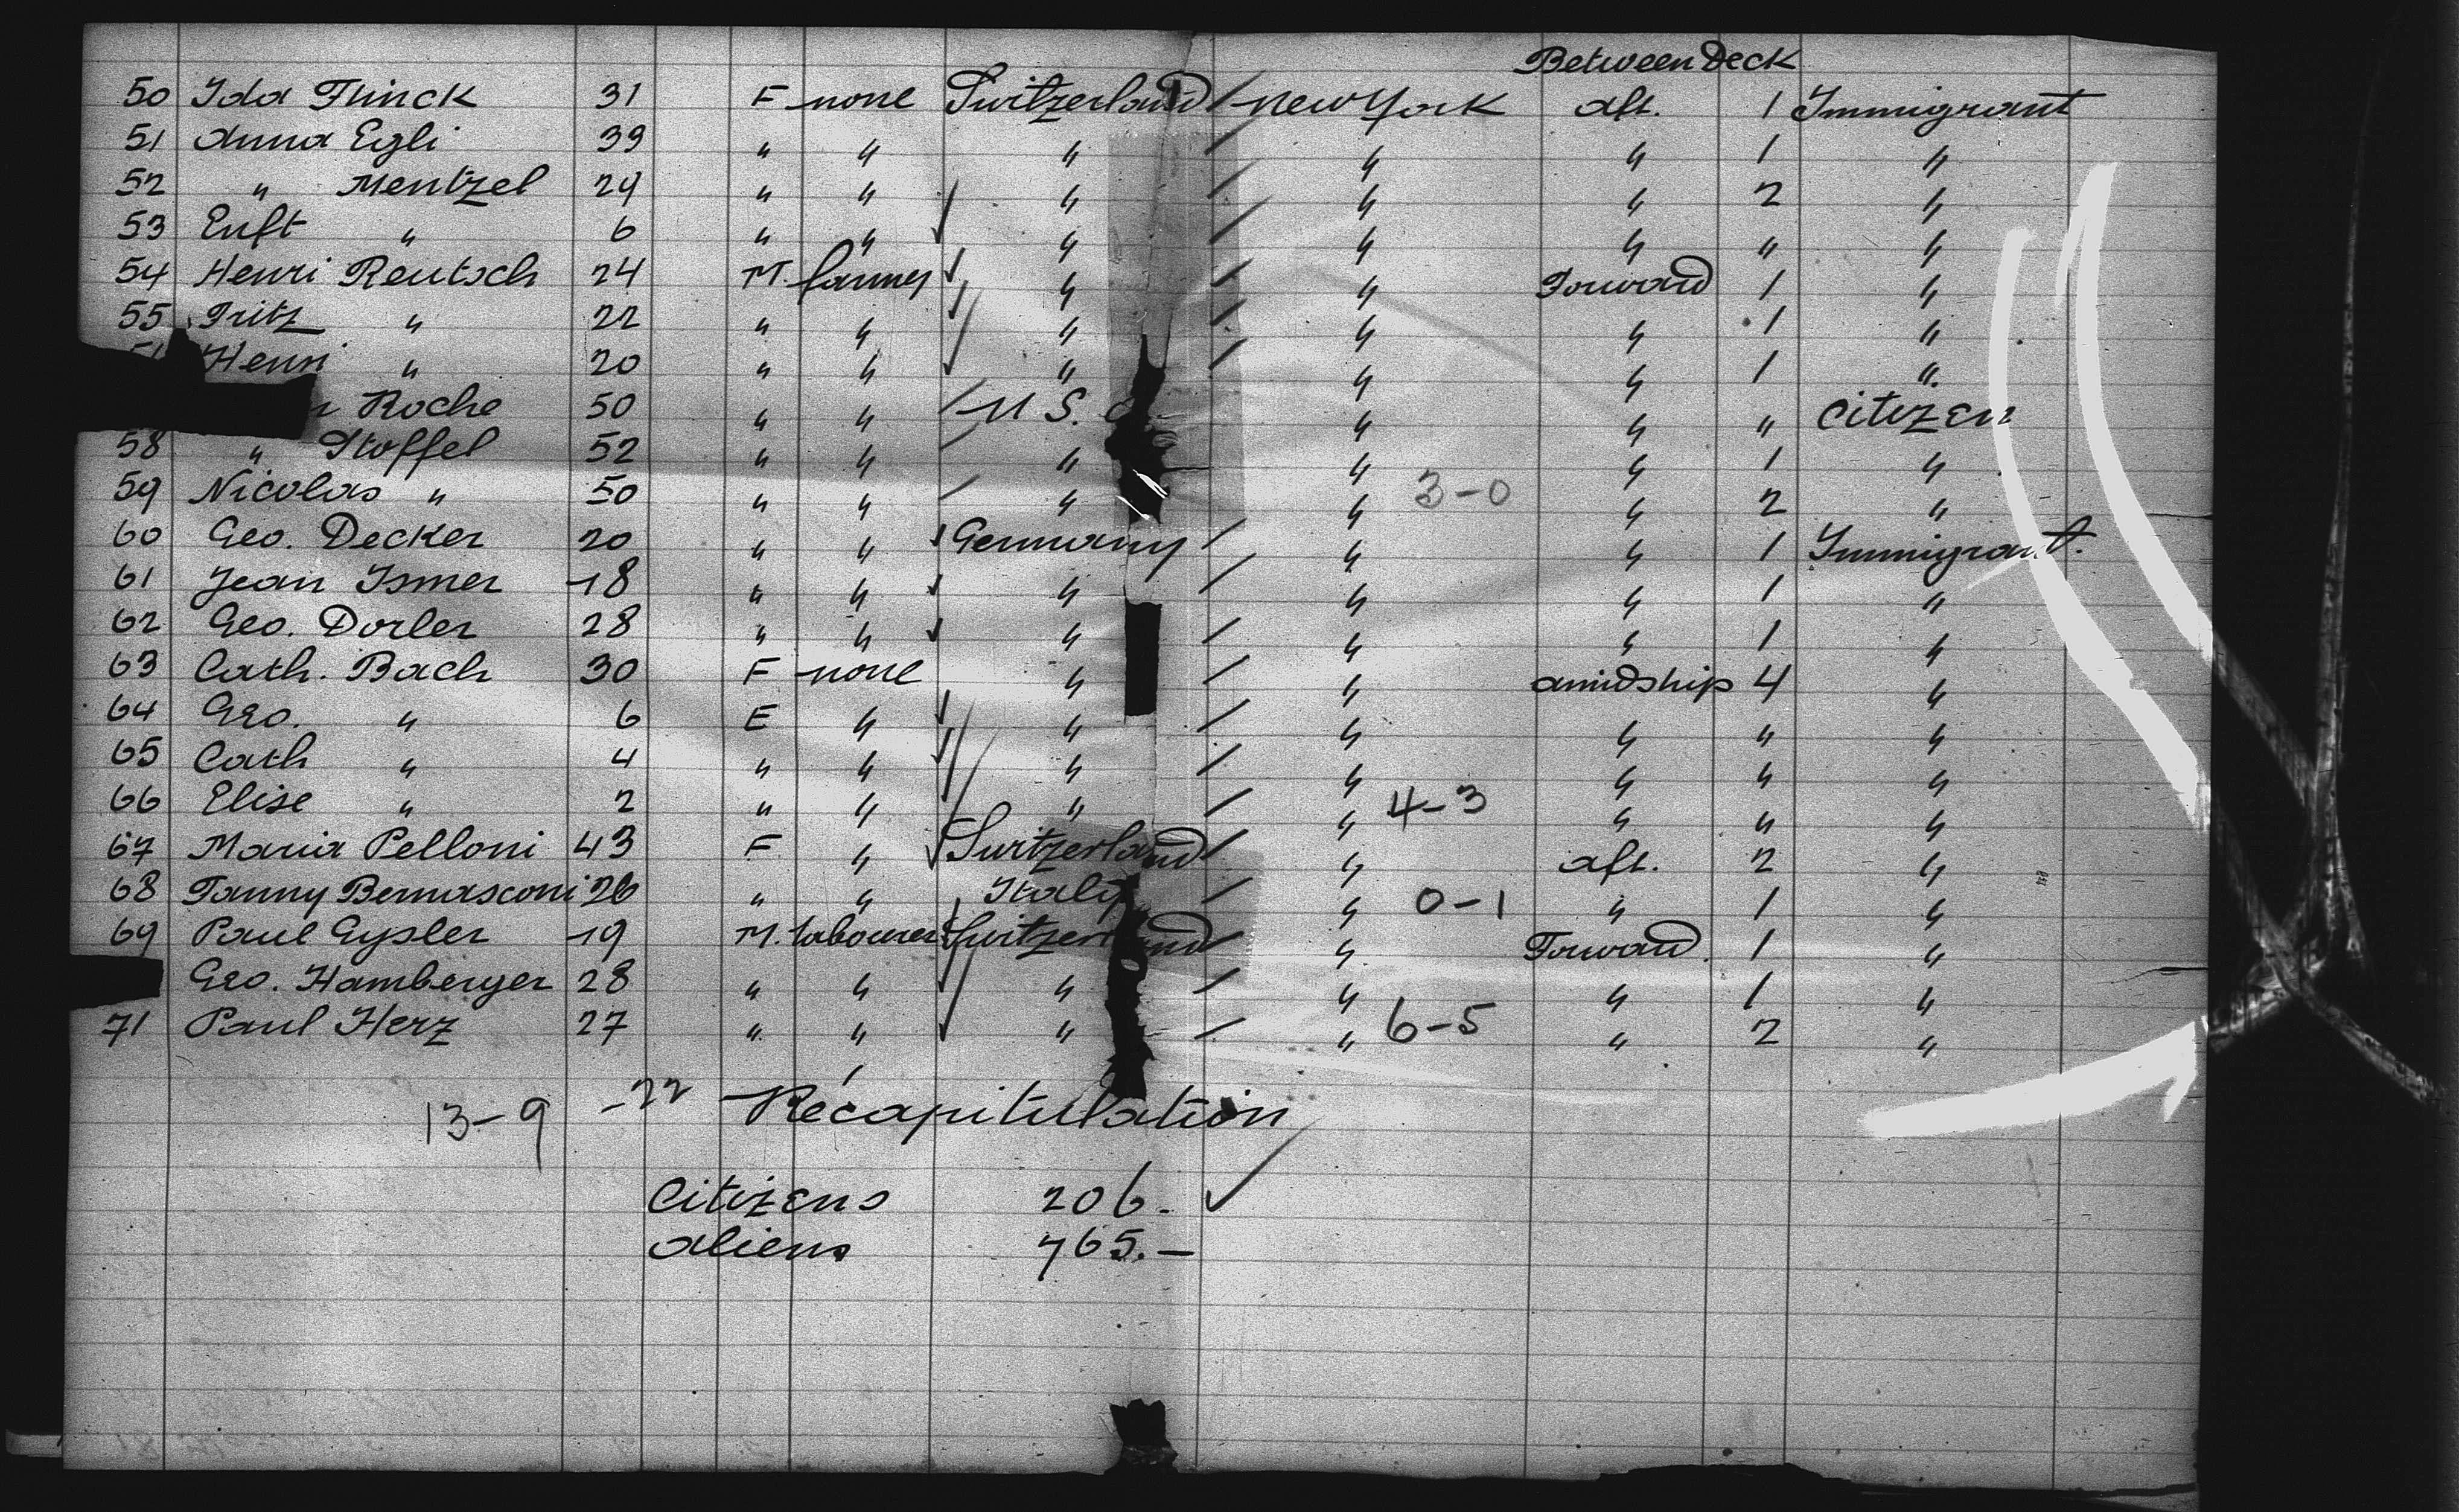 Between Deck
50 Ida Flinck 31 F none Switzerland / New York aft. 1 Immigrant
51 Anna Egli 39 " " " / " " 1 "
52 " Mentzel 29 " " " / " " 2 "
53 " 6 " " " / " " " "
54 Henri Reutsch 24 M. farmer " / " Forward 1 "
55 Fritz " 22 " " " / " " 1 "
Henri " 20 " " " / " " 1 "
Roche 50 " " U S. " " " Citizen
58 " Stoffel 52 " " " " " 1 "
59 Nicolas " 50 " " " " 3-0 " 2 "
60 Geo. Decker 20 " " Germany / " " 1 Immigrant.
61 Jean Ismer 18 " " " / " " 1 "
62 Geo. Dorler 28 " " " / " " 1 "
63 Cath. Bach 30 F none " / " amidship 4 "
64 Geo. " 6 E " " / " " " "
65 Cath " 4 " " " / " " " "
66 Elise " 2 " " " / " 4-3 " " "
67 Maria Pelloni 43 F " Switzerland / " aft. 2 "
68 Fanny Bernasconi 26 " " Italy / " 0-1 " 1 "
69 Paul Gysler 19 M. labourer Switzerland / " Forward. 1 "
Geo. Hamberger 28 " " " / " " 1 "
71 Paul Herz 27 " " " / " 6-5 " 2 "
13-9 -22 Recapitulation
Citizens 206.-
Aliens 465.-